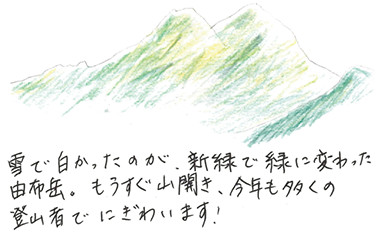 雪で白かったのが、新緑で緑に変わった
由布岳。もうすぐ山開き、今年も多くの
登山者でにぎわいます!